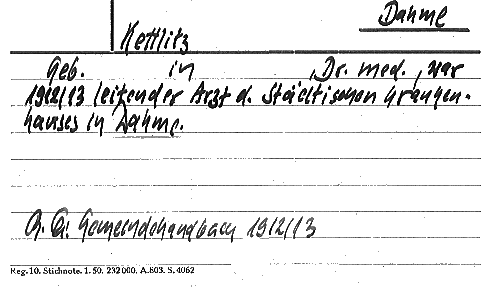 Dahme
Kettlitz
Geb. in , Dr. med., war
1912/13 leitender Arzt d. Städtischen Kranken-
hauses in Dahme.
Gemeindehandbuch 1912/13
Reg. 10. Stichnote. 1. 50. 232000. A.803. S. 4062